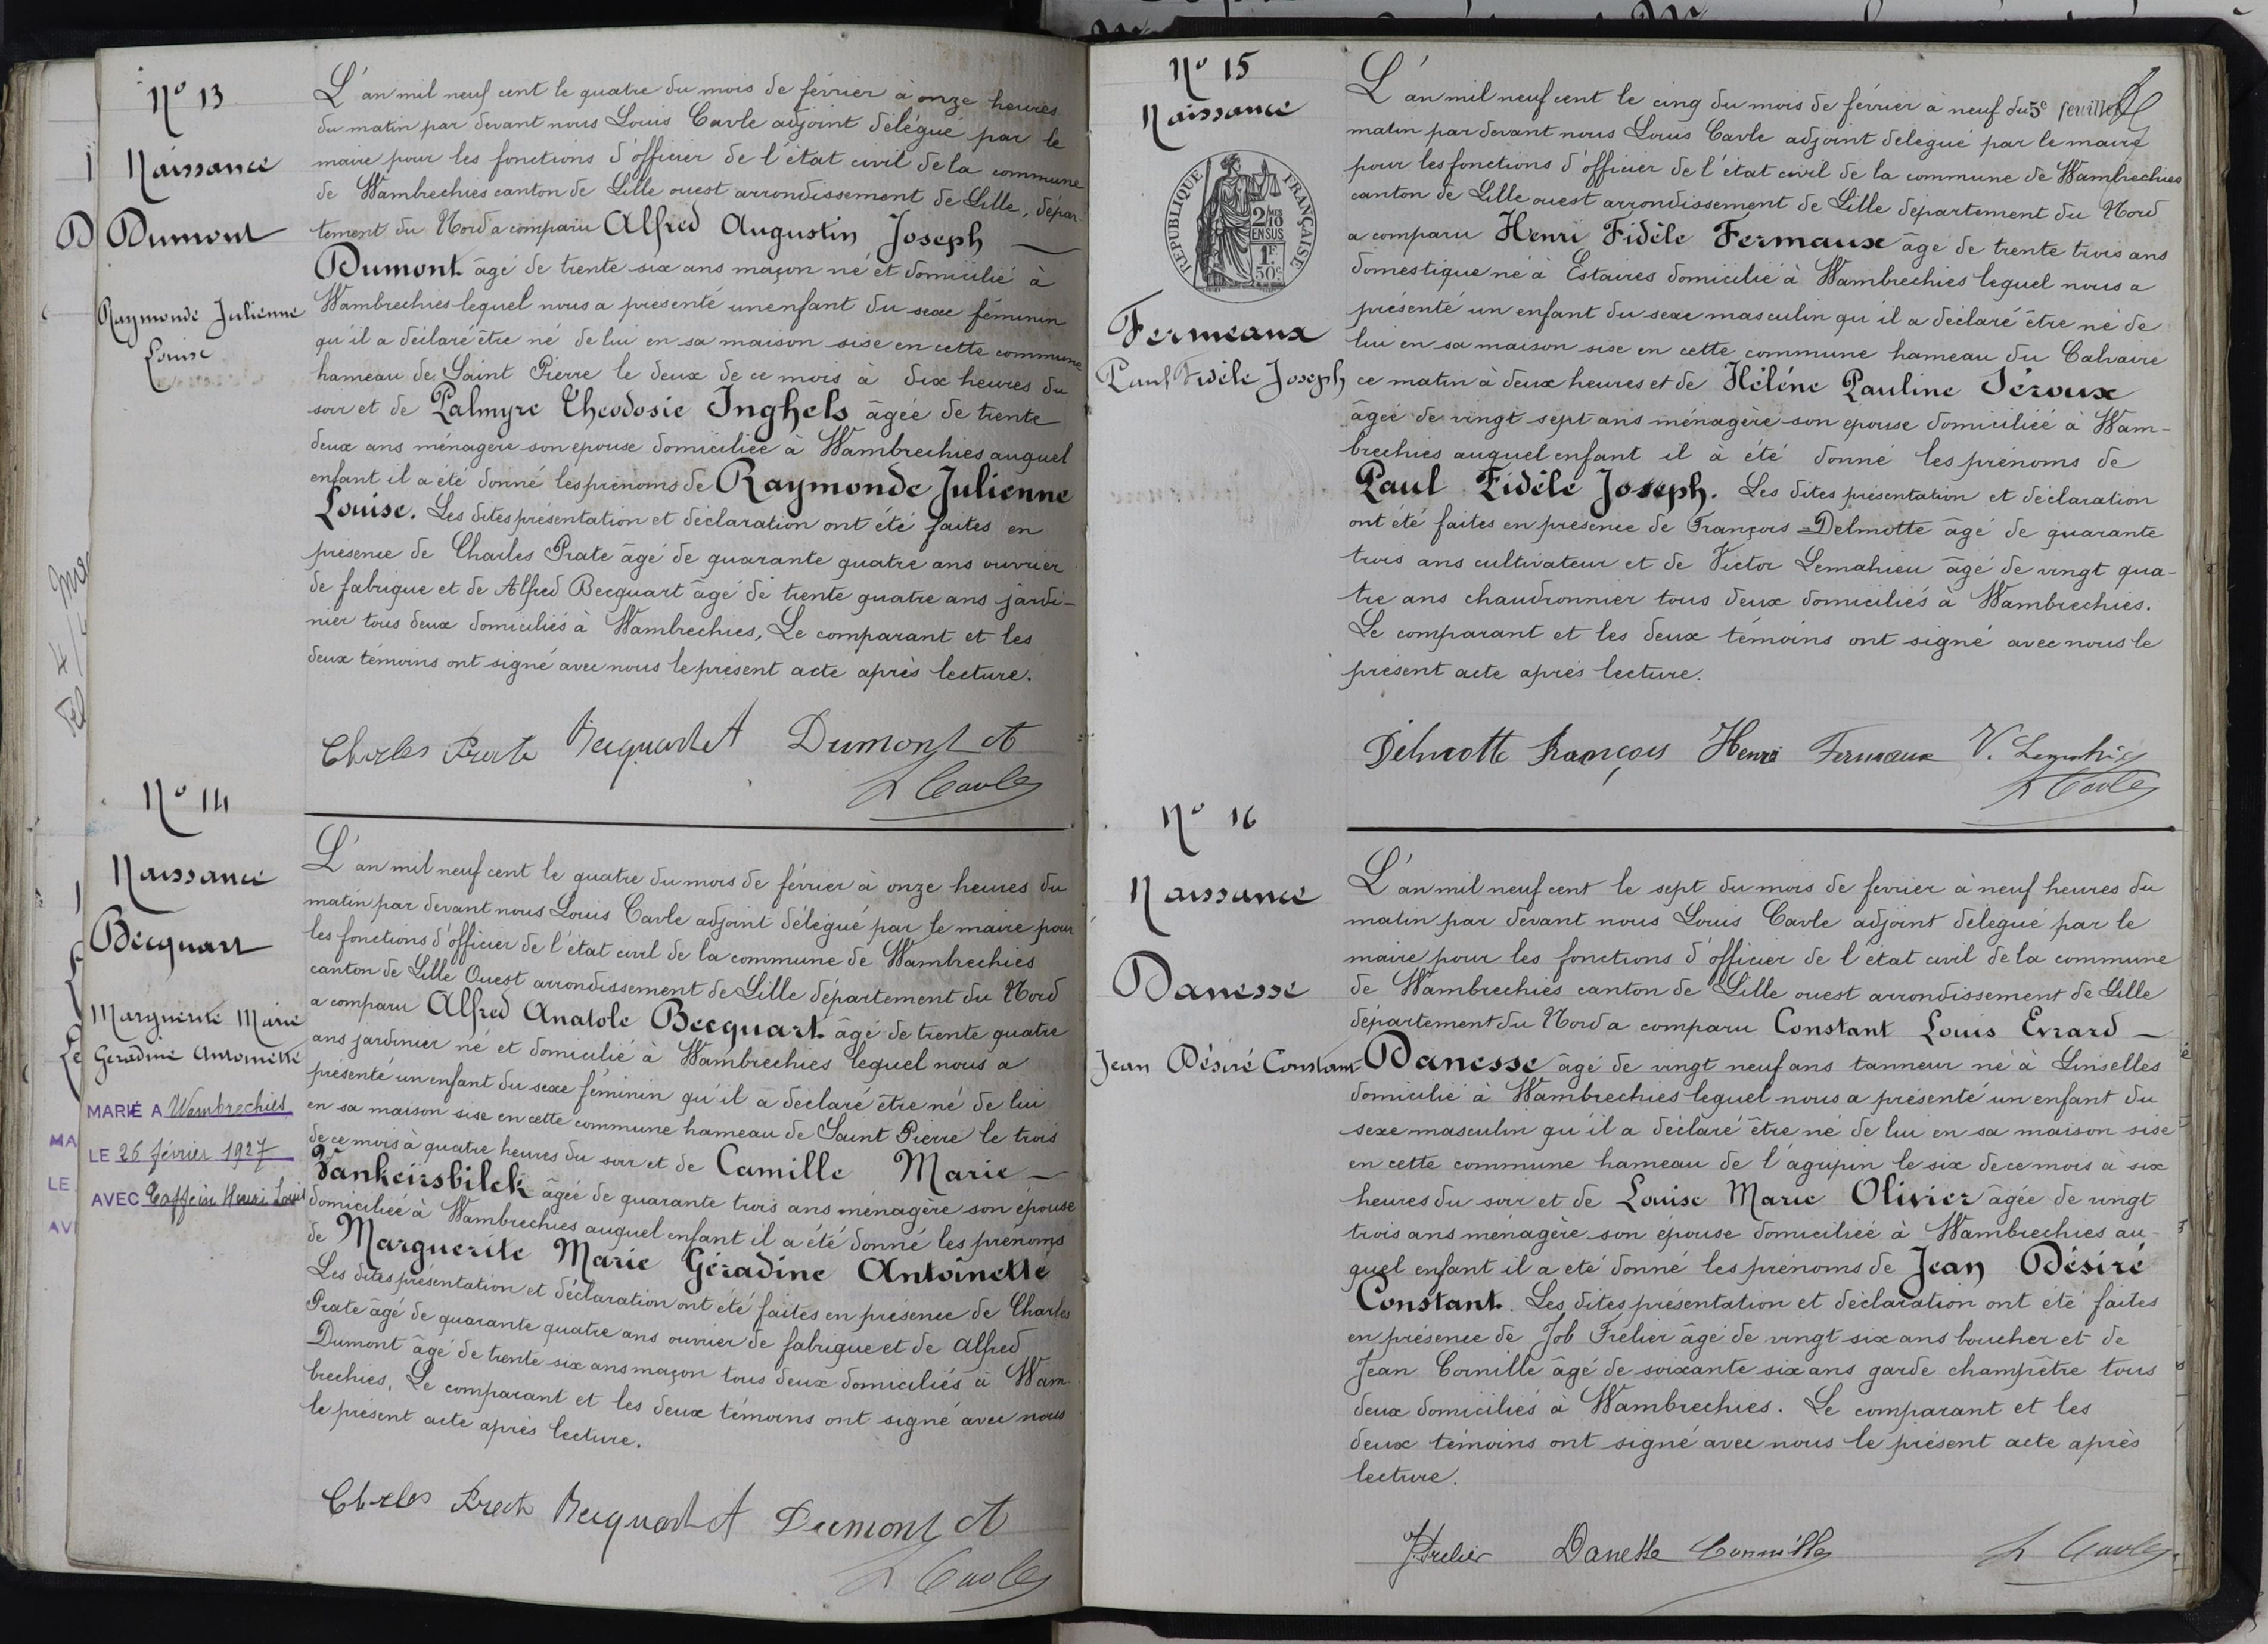 Nº 13
Naissance
Dumont
Raymonde Julienne
Louise
L'an mil neuf cent le quatre du mois de février à onze heures
du matin par devant nous Louis Cavle adjoint délégué par le
maire pour les fonctions d'officier de l'état civil de la commune
de Wambrechies canton de Lille ouest arrondissement de Lille, dépar-
tement du Nord a comparu Alfred Augustin Joseph —
Dumont âgé de trente six ans maçon né et domicilié à
Wambrechies lequel nous a présenté un enfant du sexe féminin
qu'il a déclaré être né de lui en sa maison sise en cette commune
hameau de Saint Pierre le deux de ce mois à dix heures du
soir et de Palmyre Theodosie Inghels âgée de trente
deux ans ménagère son epouse domiciliée à Wambrechies auquel
enfant il a été donné les prénoms de Raymonde Julienne
Louise. Les dites présentation et déclaration ont été faites en
présence de Charles Prate âgé de quarante quatre ans ouvrier
de fabrique et de Alfred Becquart âgé de trente quatre ans jardi-
nier tous deux domiciliés à Wambrechies, Le comparant et les
deux témoins ont signé avec nous le présent acte après lecture.
Charles Prate Becquart A Dumont A
L Cavle
Nº 14
Naissance
Becquart
Marguerite Marie
Géradine Antoinette
MARIÉ A Wambrechies
LE 26 février 1927
AVEC Henri Louis
L'an mil neuf cent le quatre du mois de février à onze heures du
matin par devant nous Louis Cavle adjoint délégué par le maire pour
les fonctions d'officier de l'état civil de la commune de Wambrechies
canton de Lille Ouest arrondissement de Lille département du Nord
a comparu Alfred Anatole Becquart âgé de trente quatre
ans jardinier né et domicilié à Wambrechies lequel nous a
présenté un enfant du sexe féminin qu'il a déclaré être né de lui
en sa maison sise en cette commune hameau de Saint Pierre le trois
de ce mois à quatre heures du soir et de Camille Marie —
Vankeirsbilck âgée de quarante trois ans ménagère son épouse
domiciliée à Wambrechies auquel enfant il a été donné les prénoms
de Marguerite Marie Géradine Antoinette
Les dites présentation et déclaration ont été faites en présence de Charles
Prate âgé de quarante quatre ans ouvrier de fabrique et de Alfred
Dumont âgé de trente six ans maçon tous deux domiciliés à Wam-
brechies. Le comparant et les deux témoins ont signé avec nous
le présent acte après lecture.
Charles Prate Becquart A Dumont A
L Cavle
Nº 15
Naissance
RÉPUBLIQUE FRANÇAISE
2/10 EN SUS
1F 50c
Fermeaux
Paul Fidèle Joseph
L'an mil neuf cent le cinq du mois de février à neuf du 5e feuillet
matin par devant nous Louis Cavle adjoint délégué par le maire
pour les fonctions d'officier de l'état civil de la commune de Wambrechies
canton de Lille ouest arrondissement de Lille département du Nord
a comparu Henri Fidèle Fermaux âgé de trente trois ans
domestique né à Estaires domicilié à Wambrechies lequel nous a
présenté un enfant du sexe masculin qu'il a déclaré être né de
lui en sa maison sise en cette commune hameau du Calvaire
ce matin à deux heures et de Héléne Pauline Séroux
âgée de vingt sept ans ménagère son epouse domiciliée à Wam-
brechies auquel enfant il à été donné les prénoms de
Paul Fidèle Joseph. Les dites présentation et déclaration
ont été faites en présence de François Delmotte âgé de quarante
trois ans cultivateur et de Victor Lemahieu âgé de vingt qua-
tre ans chaudronnier tous deux domiciliés à Wambrechies.
Le comparant et les deux témoins ont signé avec nous le
présent acte après lecture.
Delmotte François Henri Fermaux V. Lemahieu
L Cavle
Nº 16
Naissance
Danesse
Jean Désiré Constant
L'an mil neuf cent le sept du mois de fevrier à neuf heures du
matin par devant nous Louis Cavle adjoint délégué par le
maire pour les fonctions d'officier de l'état civil de la commune
de Wambrechies canton de Lille ouest arrondissement de Lille
département du Nord a comparu Constant Louis Evrard —
Danesse âgé de vingt neuf ans tanneur né à Linselles
domicilié à Wambrechies lequel nous a présenté un enfant du
sexe masculin qu'il a déclaré être né de lui en sa maison sise
en cette commune hameau de l'agripin le six de ce mois à six
heures du soir et de Louise Marie Olivier âgée de vingt
trois ans ménagère son épouse domiciliée à Wambrechies au-
quel enfant il a été donné les prénoms de Jean Désiré
Constant. Les dites présentation et déclaration ont été faites
en présence de Job Frélier âgé de vingt six ans boucher et de
Jean Cornille âgé de soixante six ans garde champêtre tous
deux domiciliés à Wambrechies. Le comparant et les
deux témoins ont signé avec nous le présent acte après
lecture.
J Frelier Danesse Cornille L Cavle